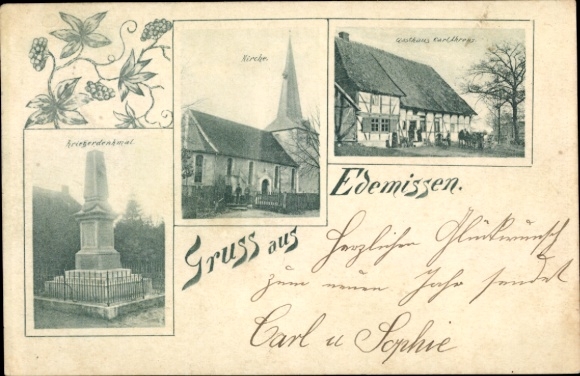 Kirche.
Gasthaus Karl Ahrens.
Kriegerdenkmal.
Gruss aus
Edemissen.
Herzlichen Glückwunsch
zum neuen Jahr sendet
Carl u Sophie